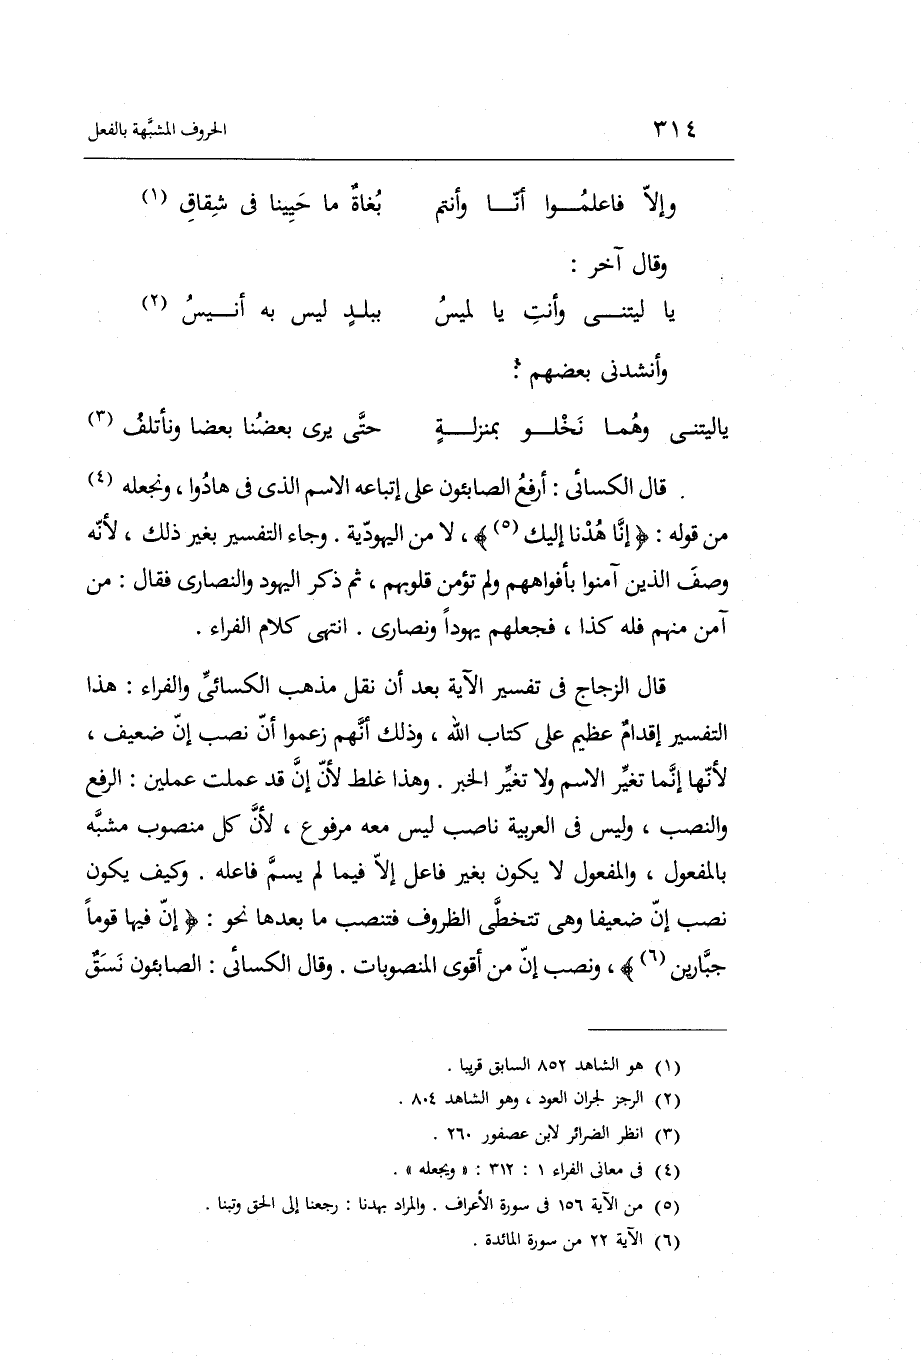 ٣١٤ الحروف المشبَّهة بالفعل
وإلاّ فاعلمُـــوا أنّـــا وأنتم بُغاةٌ ما حَيِينا فى شِقاقِ (١)
وقال آخر :
يا ليتنـــى وأنتِ يا لميسُ ببلـدٍ ليس به أنـــيسُ (٢)
وأنشدنى بعضهم :
ياليتنـى وهُمـا نَخْلـــو بمنزلـــةٍ حتَّى يرى بعضُنا بعضا ونأتلفُ (٣)
قال الكسائى : أرفعُ الصابئون على إتباعه الاسم الذى فى هادُوا ، ونجعله (٤)
من قوله : ﴿ إنَّا هُدْنا إليك (٥) ﴾ ، لا من اليهوديّة . وجاء التفسير بغير ذلك ، لأنّه
وصفَ الذين آمنوا بأفواههم ولم تؤمن قلوبهم ، ثم ذكر اليهود والنصارى فقال : من
آمن منهم فله كذا ، فجعلهم يهوداً ونصارى . انتهى كلام الفراء .
قال الزجاج فى تفسير الآية بعد أن نقل مذهب الكسائىِّ والفراء : هذا
التفسير إقدامٌ عظيم على كتاب الله ، وذلك أنَّهم زعموا أنّ نصب إنّ ضعيف ،
لأنّها إنَّما تغيِّر الاسم ولا تغيِّر الخبر . وهذا غلط لأنّ إنَّ قد عملت عملين : الرفع
والنصب ، وليس فى العربية ناصب ليس معه مرفوع ، لأنَّ كل منصوب مشبَّه
بالمفعول ، والمفعول لا يكون بغير فاعل إلاّ فيما لم يسمَّ فاعله . وكيف يكون
نصب إنّ ضعيفا وهى تتخطَّى الظروف فتنصب ما بعدها نحو : ﴿ إنّ فيها قوماً
جبَّارين (٦) ﴾ ، ونصب إنّ من أقوى المنصوبات . وقال الكسائى : الصابئون نَسَقٌ
(١) هو الشاهد ٨٥٢ السابق قريبا .
(٢) الرجز لجران العود ، وهو الشاهد ٨٠٤ .
(٣) انظر الضرائر لابن عصفور ٢٦٠ .
(٤) فى معانى الفراء ١ : ٣١٢ : « ويجعله » .
(٥) من الآية ١٥٦ فى سورة الأعراف . والمراد بهدنا : رجعنا إلى الحق وتبنا .
(٦) الآية ٢٢ من سورة المائدة .